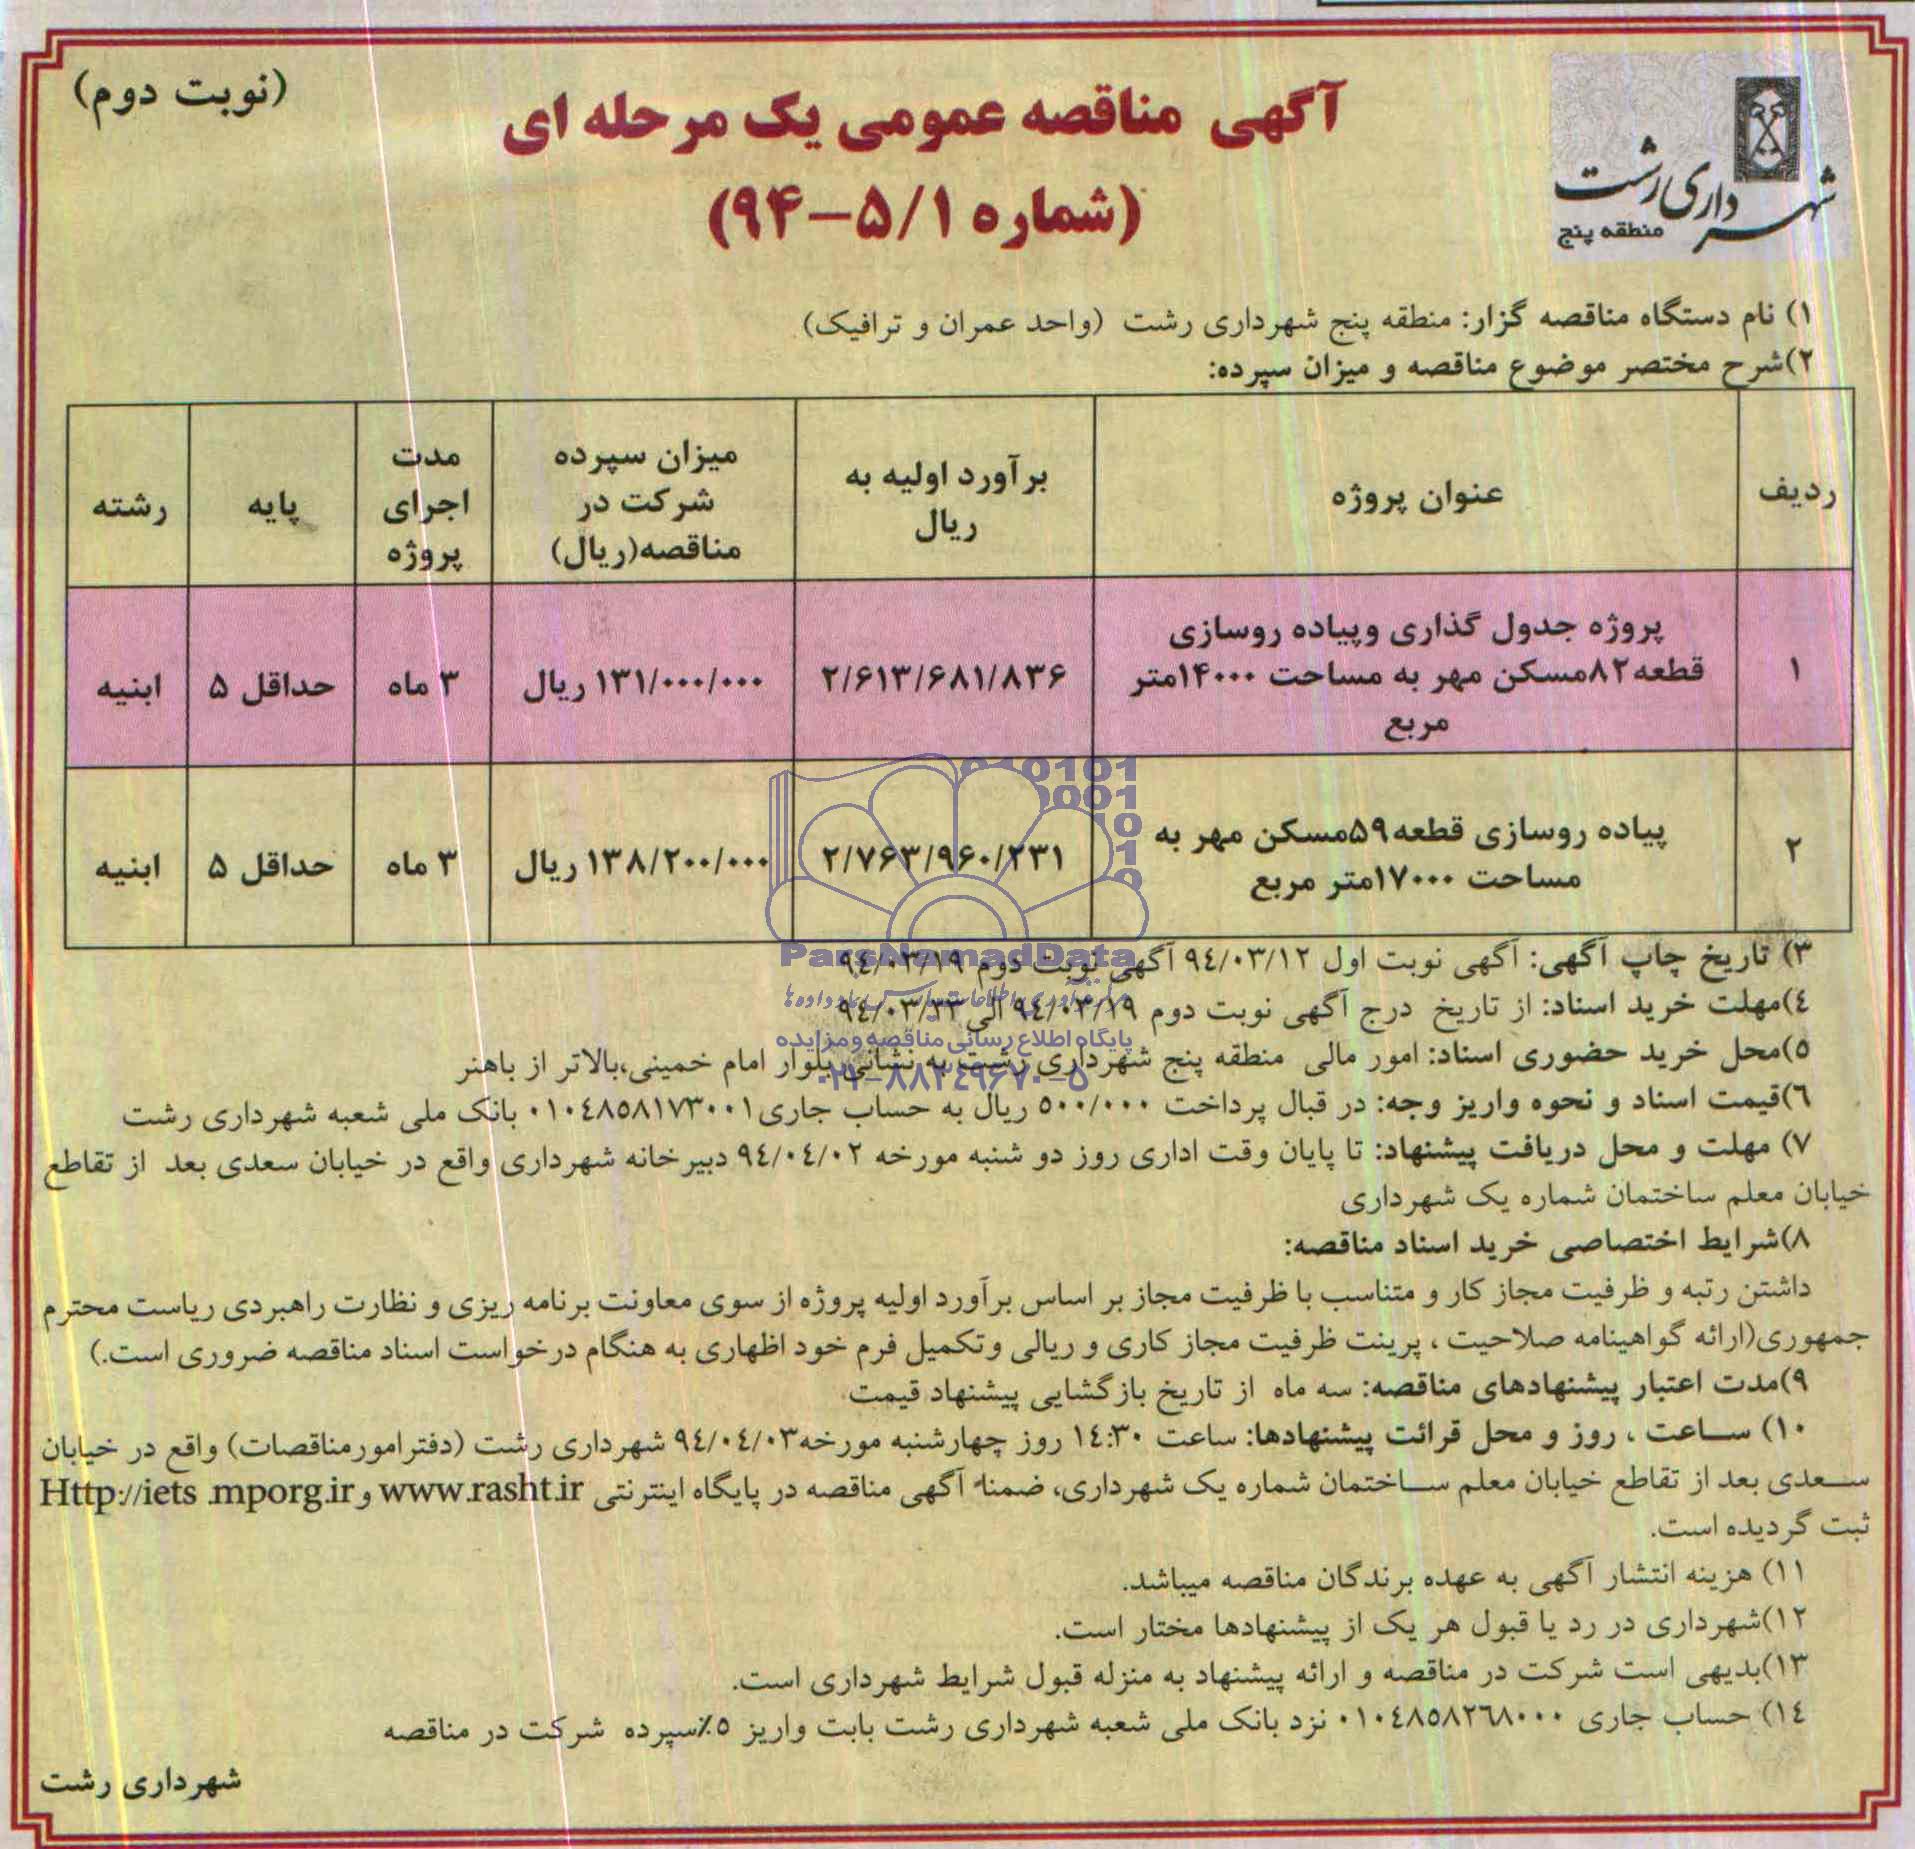 (نوبت دوم)
آگهی مناقصه عمومی یک مرحله ای
(شماره ۵/۱-۹۴)
شهرداری رشت
منطقه پنج
۱) نام دستگاه مناقصه گزار: منطقه پنج شهرداری رشت (واحد عمران و ترافیک)
۲)شرح مختصر موضوع مناقصه و میزان سپرده:
ردیف
عنوان پروژه
برآورد اولیه به
ریال
میزان سپرده
شرکت در
مناقصه(ریال)
مدت
اجرای
پروژه
پایه
رشته
۱
پروژه جدول گذاری وپیاده روسازی
قطعه۸۲مسکن مهر به مساحت ۱۴۰۰۰متر
مربع
۲/۶۱۳/۶۸۱/۸۳۶
۱۳۱/۰۰۰/۰۰۰ ریال
۳ ماه
حداقل ۵
ابنیه
۲
پیاده روسازی قطعه۵۹مسکن مهر به
مساحت ۱۷۰۰۰متر مربع
۲/۷۶۳/۹۶۰/۲۳۱
۱۳۸/۲۰۰/۰۰۰ ریال
۳ ماه
حداقل ۵
ابنیه
ParsNamadData
۳) تاریخ چاپ آگهی: آگهی نوبت اول ۹٤/۰۳/۱۲ آگهی نوبت دوم ۹٤/۰۳/۱۹
٤)مهلت خرید اسناد: از تاریخ درج آگهی نوبت دوم ۹٤/۰۳/۱۹ الی ۹٤/۰۳/۲۳
پایگاه اطلاع رسانی مناقصه ومزایده
۵)محل خرید حضوری اسناد: امور مالی منطقه پنج شهرداری رشت به نشانی بلوار امام خمینی،بالاتر از باهنر
۰۲۱-۸۸۳٤۹٦۷۰-۵
۶)قیمت اسناد و نحوه واریز وجه: در قبال پرداخت ۵۰۰/۰۰۰ ریال به حساب جاری۰۱۰٤۸۵۸۱۷۳۰۰۱ بانک ملی شعبه شهرداری رشت
۷) مهلت و محل دریافت پیشنهاد: تا پایان وقت اداری روز دو شنبه مورخه ۹٤/۰٤/۰۲ دبیرخانه شهرداری واقع در خیابان سعدی بعد از تقاطع
خیابان معلم ساختمان شماره یک شهرداری
۸)شرایط اختصاصی خرید اسناد مناقصه:
داشتن رتبه و ظرفیت مجاز کار و متناسب با ظرفیت مجاز بر اساس برآورد اولیه پروژه از سوی معاونت برنامه ریزی و نظارت راهبردی ریاست محترم
جمهوری(ارائه گواهینامه صلاحیت ، پرینت ظرفیت مجاز کاری و ریالی وتکمیل فرم خود اظهاری به هنگام درخواست اسناد مناقصه ضروری است.)
۹)مدت اعتبار پیشنهادهای مناقصه: سه ماه از تاریخ بازگشایی پیشنهاد قیمت
۱۰) ساعت ، روز و محل قرائت پیشنهادها: ساعت ۱٤:۳۰ روز چهارشنبه مورخه۹٤/۰٤/۰۳ شهرداری رشت (دفترامورمناقصات) واقع در خیابان
سعدی بعد از تقاطع خیابان معلم ساختمان شماره یک شهرداری، ضمناً آگهی مناقصه در پایگاه اینترنتی www.rasht.ir و Http://iets.mporg.ir
ثبت گردیده است.
۱۱) هزینه انتشار آگهی به عهده برندگان مناقصه میباشد.
۱۲)شهرداری در رد یا قبول هر یک از پیشنهادها مختار است.
۱۳)بدیهی است شرکت در مناقصه و ارائه پیشنهاد به منزله قبول شرایط شهرداری است.
۱٤) حساب جاری ۰۱۰٤۸۵۸۲٦۸۰۰۰ نزد بانک ملی شعبه شهرداری رشت بابت واریز ۵٪سپرده شرکت در مناقصه
شهرداری رشت